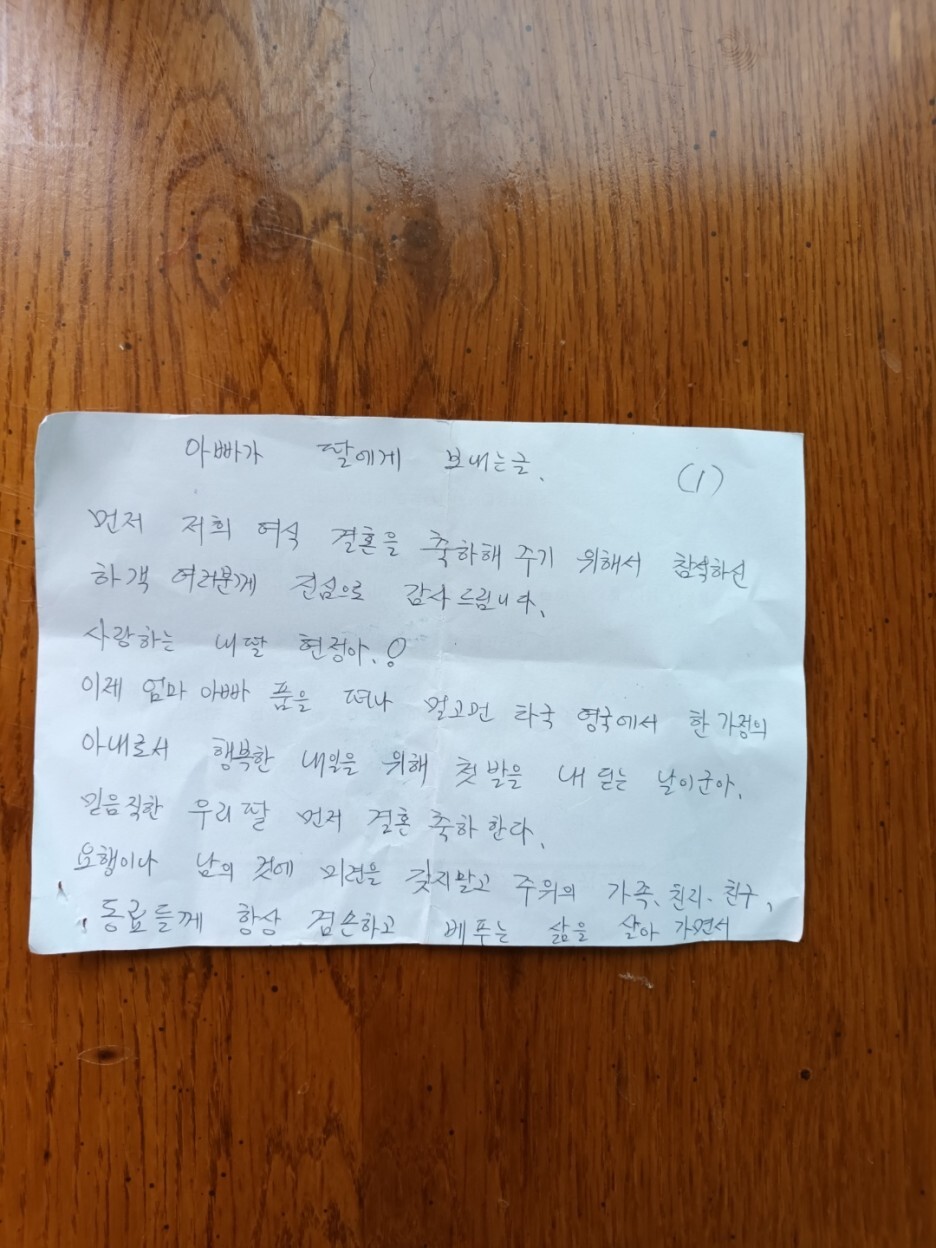 아빠가 딸에게 보내는글.
(1)
먼저 저희 여식 결혼을 축하해 주기 위해서 참석하신
하객 여러분께 진심으로 감사 드립니다.
사랑하는 내딸 현정아.!
이제 엄마 아빠 품을 떠나 멀고먼 타국 영국에서 한 가정의
아내로서 행복한 내일을 위해 첫 발을 내 딛는 날이군아.
믿음직한 우리딸 먼저 결혼 축하 한다.
요행이나 남의 것에 미련을 갖지말고 주위의 가족, 친지. 친구,
동료들께 항상 겸손하고 베푸는 삶을 살아 가면서